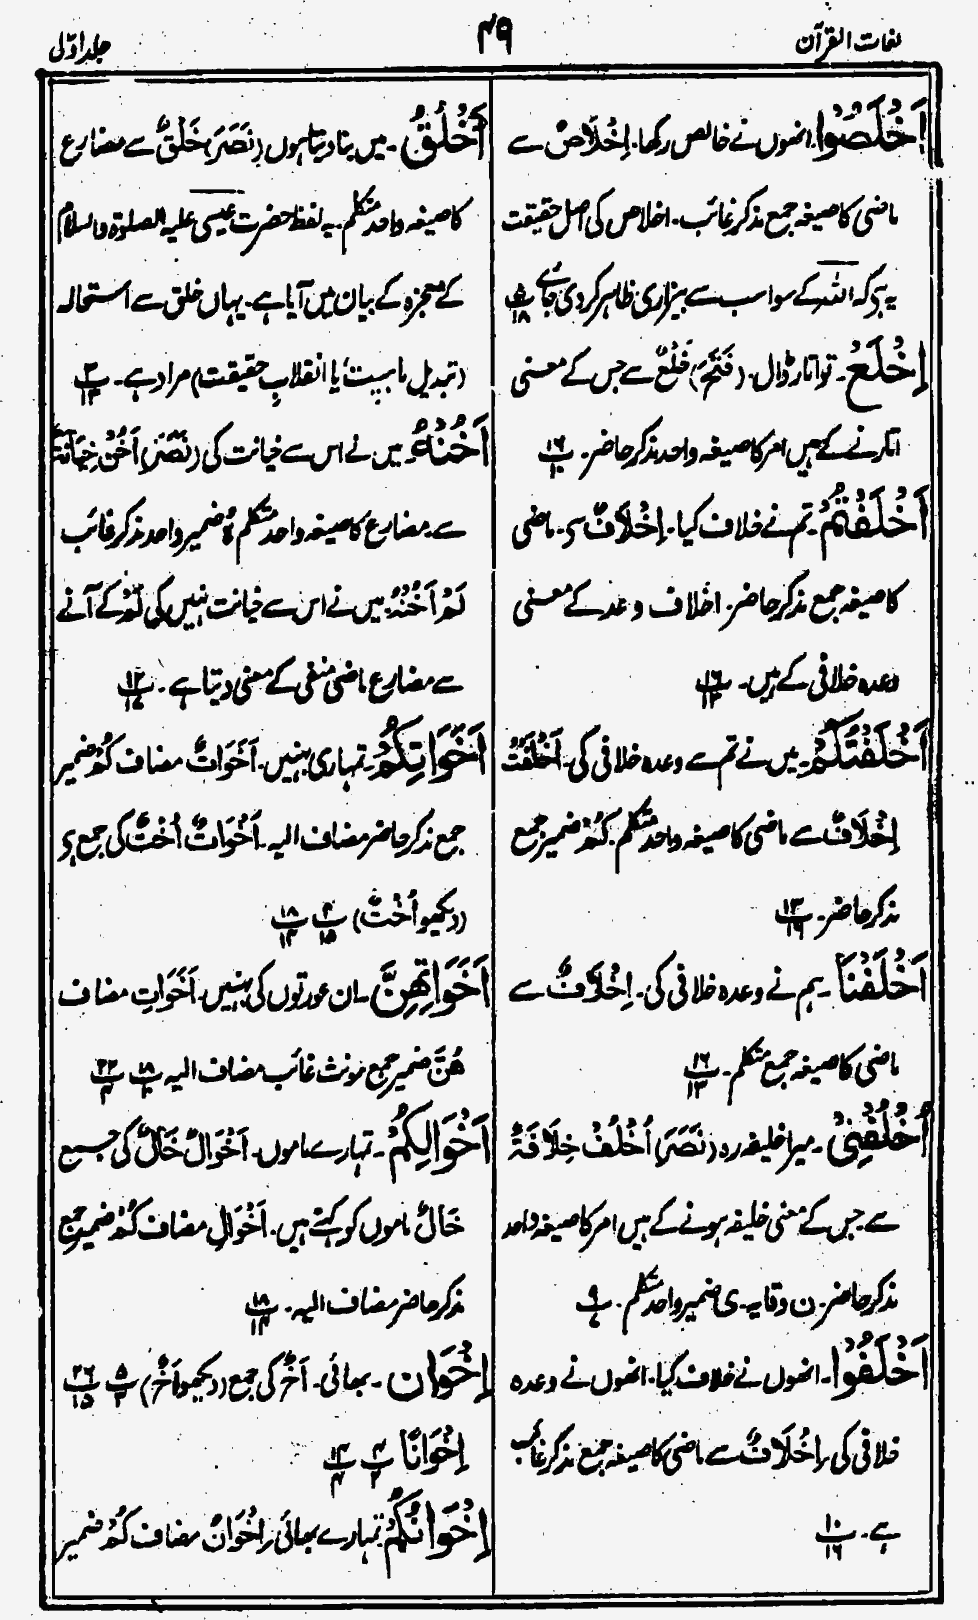 لغات القرآن
۴۹
جلد اوّل
اَخْلَصُوْا۔ انھوں نے خالص رکھا۔ اِخْلَاصٌ سے
ماضی کا صیغہ جمع مذکر غائب۔ اخلاص کی اصل حقیقت
یہ ہے کہ اللہ کے سوا سب سے بیزاری ظاہر کردی جائے
اِخْلَعْ۔ تو اتار ڈال۔ (فَتَحَ) خَلْعٌ سے جس کے معنی
اتارنے کے ہیں امر کا صیغہ واحد مذکر حاضر۔ ۱۶
اَخْلَفْتُمْ۔ تم نے خلاف کیا۔ اِخْلَافٌ سے۔ ماضی
کا صیغہ جمع مذکر حاضر۔ اخلاف وعد کے معنی
وعدہ خلافی کے ہیں۔ ۱۶
اَخْلَفْتُكُمْ۔ میں نے تم سے وعدہ خلافی کی۔ اَخْلَفْتُ
اِخْلَافٌ سے ماضی کا صیغہ واحد متکلم۔ كُمْ ضمیر جمع
مذکر حاضر۔ ۱۳
اَخْلَفْنَا۔ ہم نے وعدہ خلافی کی۔ اِخْلَافٌ سے
ماضی کا صیغہ جمع متکلم۔ ۱۶
اُخْلُفْنِیْ۔ میرا خلیفہ رہ (نَصَرَ) اُخْلُفْ خِلَافَۃٌ
سے جس کے معنی خلیفہ ہونے کے ہیں امر کا صیغہ واحد
مذکر حاضر۔ ن وقایہ۔ ی ضمیر واحد متکلم۔ ۹
اَخْلَفُوْا۔ انھوں نے خلاف کیا۔ انھوں نے وعدہ
خلافی کی۔ اِخْلَافٌ سے ماضی کا صیغہ جمع مذکر غائب
ہے۔ ۱۰ ۱۶
اَخْلُقُ۔ میں بنا دیتا ہوں (نَصَرَ) خَلْقٌ سے مضارع
کا صیغہ واحد متکلم۔ یہ لفظ حضرت عیسیٰ علیہ الصلوٰۃ والسلام
کے معجزہ کے بیان میں آیا ہے۔ یہاں خلق سے استحالہ
(تبدیل ماہیت یا انقلابِ حقیقت) مراد ہے۔ ۳ ۱۳
اَخُنْهُ۔ میں نے اس سے خیانت کی (نَصَرَ) اَخُنْ خِیَانَۃٌ
سے۔ مضارع کا صیغہ واحد متکلم ہٗ ضمیر واحد مذکر غائب
لَمْ اَخُنْهُ میں نے اس سے خیانت نہیں کی لَمْ کے آنے
سے مضارع ماضی منفی کے معنی دیتا ہے۔ ۱۲
اَخَوَاتِكُمْ۔ تمہاری بہنیں۔ اَخَوَاتٌ مضاف كُمْ ضمیر
جمع مذکر حاضر مضاف الیہ۔ اَخَوَاتٌ اُخْتٌ کی جمع ہے
(دیکھو اُخْتٌ) ۴ ۱۵ ۱۸ ۱۴
اَخَوَاتِهِنَّ۔ ان عورتوں کی بہنیں۔ اَخَوَاتِ مضاف
هُنَّ ضمیر جمع مونث غائب مضاف الیہ ۱۸ ۲۲
اَخْوَالِكُمْ۔ تمہارے ماموں۔ اَخْوَالٌ خَالٌ کی جمع
خَالٌ ماموں کو کہتے ہیں۔ اَخْوَالِ مضاف كُمْ ضمیر جمع
مذکر حاضر مضاف الیہ۔ ۱۸ ۱۴
اِخْوَان۔ بھائی۔ اَخٌ کی جمع (دیکھو اَخٌ) ۲۶ ۱۵
اِخْوَانًا ۴ ۲ ۱۴ ۴
اِخْوَانُكُمْ تمہارے بھائی اِخْوَانٌ مضاف كُمْ ضمیر